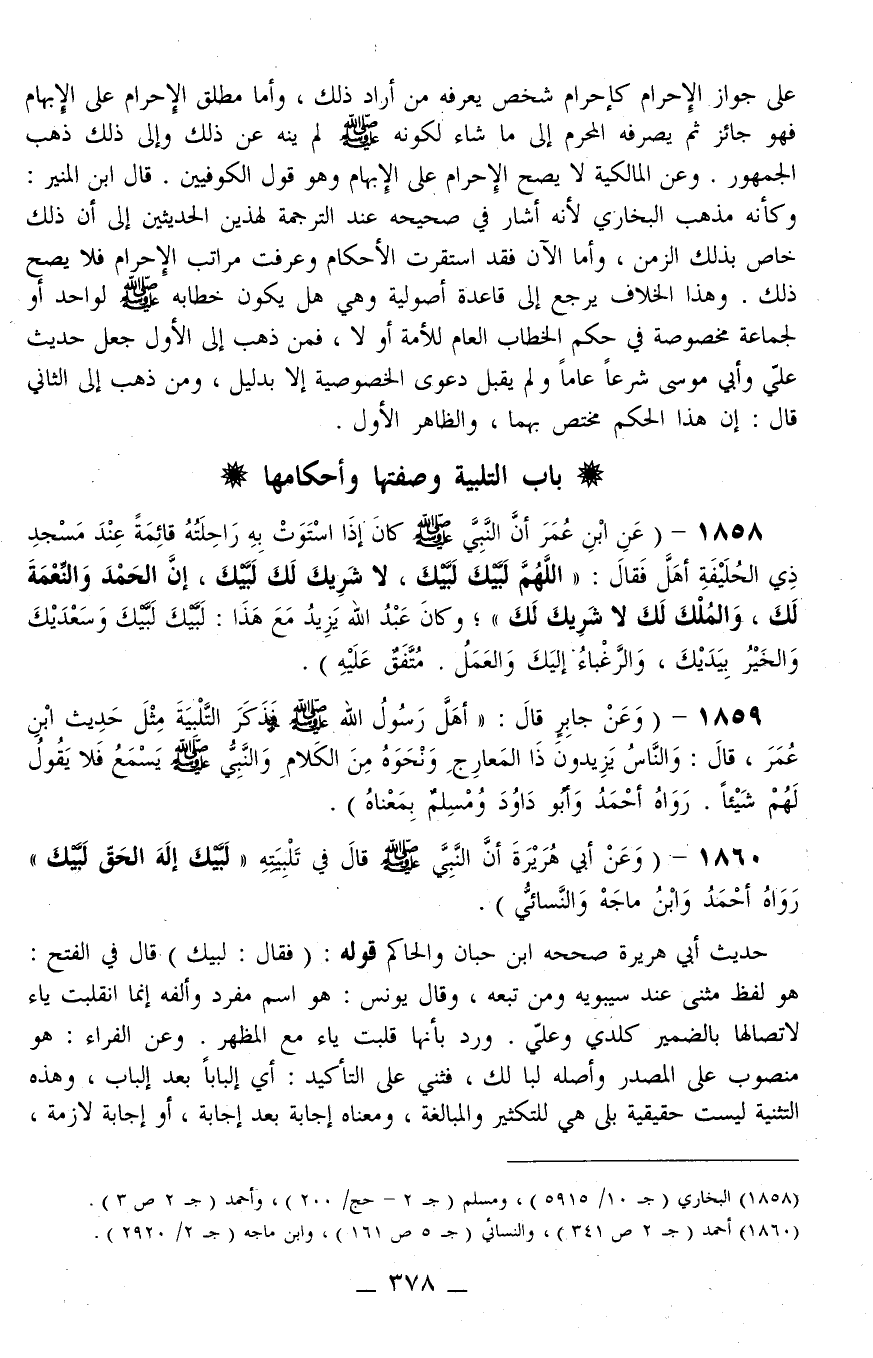 على جواز الإحرام كإحرام شخص يعرفه من أراد ذلك ، وأما مطلق الإحرام على الإبهام
فهو جائز ثم يصرفه المحرم إلى ما شاء لكونه ﷺ لم ينه عن ذلك وإلى ذلك ذهب
الجمهور . وعن المالكية لا يصح الإحرام على الإبهام وهو قول الكوفيين . قال ابن المنير :
وكأنه مذهب البخاري لأنه أشار في صحيحه عند الترجمة لهذين الحديثين إلى أن ذلك
خاص بذلك الزمن ، وأما الآن فقد استقرت الأحكام وعرفت مراتب الإحرام فلا يصح
ذلك . وهذا الخلاف يرجع إلى قاعدة أصولية وهي هل يكون خطابه ﷺ لواحد أو
لجماعة مخصوصة في حكم الخطاب العام للأمة أو لا ، فمن ذهب إلى الأول جعل حديث
عليّ وأبي موسى شرعاً عاماً ولم يقبل دعوى الخصوصية إلا بدليل ، ومن ذهب إلى الثاني
قال : إن هذا الحكم مختص بهما ، والظاهر الأول .
✺ باب التلبية وصفتها وأحكامها ✺
١٨٥٨ – ( عَنِ ابْنِ عُمَرَ أنَّ النَّبِيَّ ﷺ كانَ إذَا اسْتَوَتْ بِهِ رَاحِلَتُهُ قائِمَةً عِنْدَ مَسْجدِ
ذِي الحُلَيْفَةِ أهَلَّ فَقالَ : « اللَّهُمَّ لَبَّيْكَ لَبَّيْكَ ، لا شَرِيكَ لَكَ لَبَّيْكَ ، إنَّ الحَمْدَ وَالنِّعْمَةَ
لَكَ ، وَالمُلْكَ لَكَ لا شَرِيكَ لَكَ » ؛ وكانَ عَبْدُ الله يَزِيدُ مَعَ هَذَا : لَبَّيْكَ لَبَّيْكَ وَسَعْدَيْكَ
وَالخَيْرُ بِيَدَيْكَ ، وَالرَّغْباءُ إلَيْكَ وَالعَمَلُ . مُتَّفَقٌ عَلَيْهِ ) .
١٨٥٩ – ( وَعَنْ جابِرٍ قالَ : « أهَلَّ رَسُولُ الله ﷺ فَذَكَرَ التَّلْبِيَةَ مِثْلَ حَدِيث ابْنِ
عُمَرَ ، قالَ : وَالنَّاسُ يَزِيدونَ ذَا المَعارِجِ وَنْحَوَهُ مِنَ الكَلام وَالنَّبِيُّ ﷺ يَسْمَعُ فَلا يَقُولُ
لَهُمْ شَيْئاً . رَوَاهُ أحْمَدُ وَأَبُو دَاوُدَ وُمْسِلمٌ بِمَعْناهُ ) .
١٨٦٠ – ( وَعَنْ أبي هُرَيْرَةَ أنَّ النَّبِيَّ ﷺ قالَ في تَلْبِيَتِهِ « لَبَّيْكَ إلَهَ الحَقّ لَبَّيْكَ »
رَوَاهُ أحْمَدُ وَابْنُ ماجَهْ وَالنَّسائيُّ ) .
حديث أبي هريرة صححه ابن حبان والحاكم قوله : ( فقال : لبيك ) قال في الفتح :
هو لفظ مثنى عند سيبويه ومن تبعه ، وقال يونس : هو اسم مفرد وألفه إنما انقلبت ياء
لاتصالها بالضمير كلدي وعليّ . ورد بأنها قلبت ياء مع المظهر . وعن الفراء : هو
منصوب على المصدر وأصله لبا لك ، فثني على التأكيد : أي إلباباً بعد إلباب ، وهذه
التثنية ليست حقيقية بلى هي للتكثير والمبالغة ، ومعناه إجابة بعد إجابة ، أو إجابة لازمة ،
(١٨٥٨) البخاري ( جـ ١٠/ ٥٩١٥ ) ، ومسلم ( جـ ٢ – حج/ ٢٠٠ ) ، وأحمد ( جـ ٢ ص ٣ ) .
(١٨٦٠) أحمد ( جـ ٢ ص ٣٤١ ) ، والنسائي ( جـ ٥ ص ١٦١ ) ، وابن ماجه ( جـ ٢/ ٢٩٢٠ ) .
ــ ٣٧٨ ــ